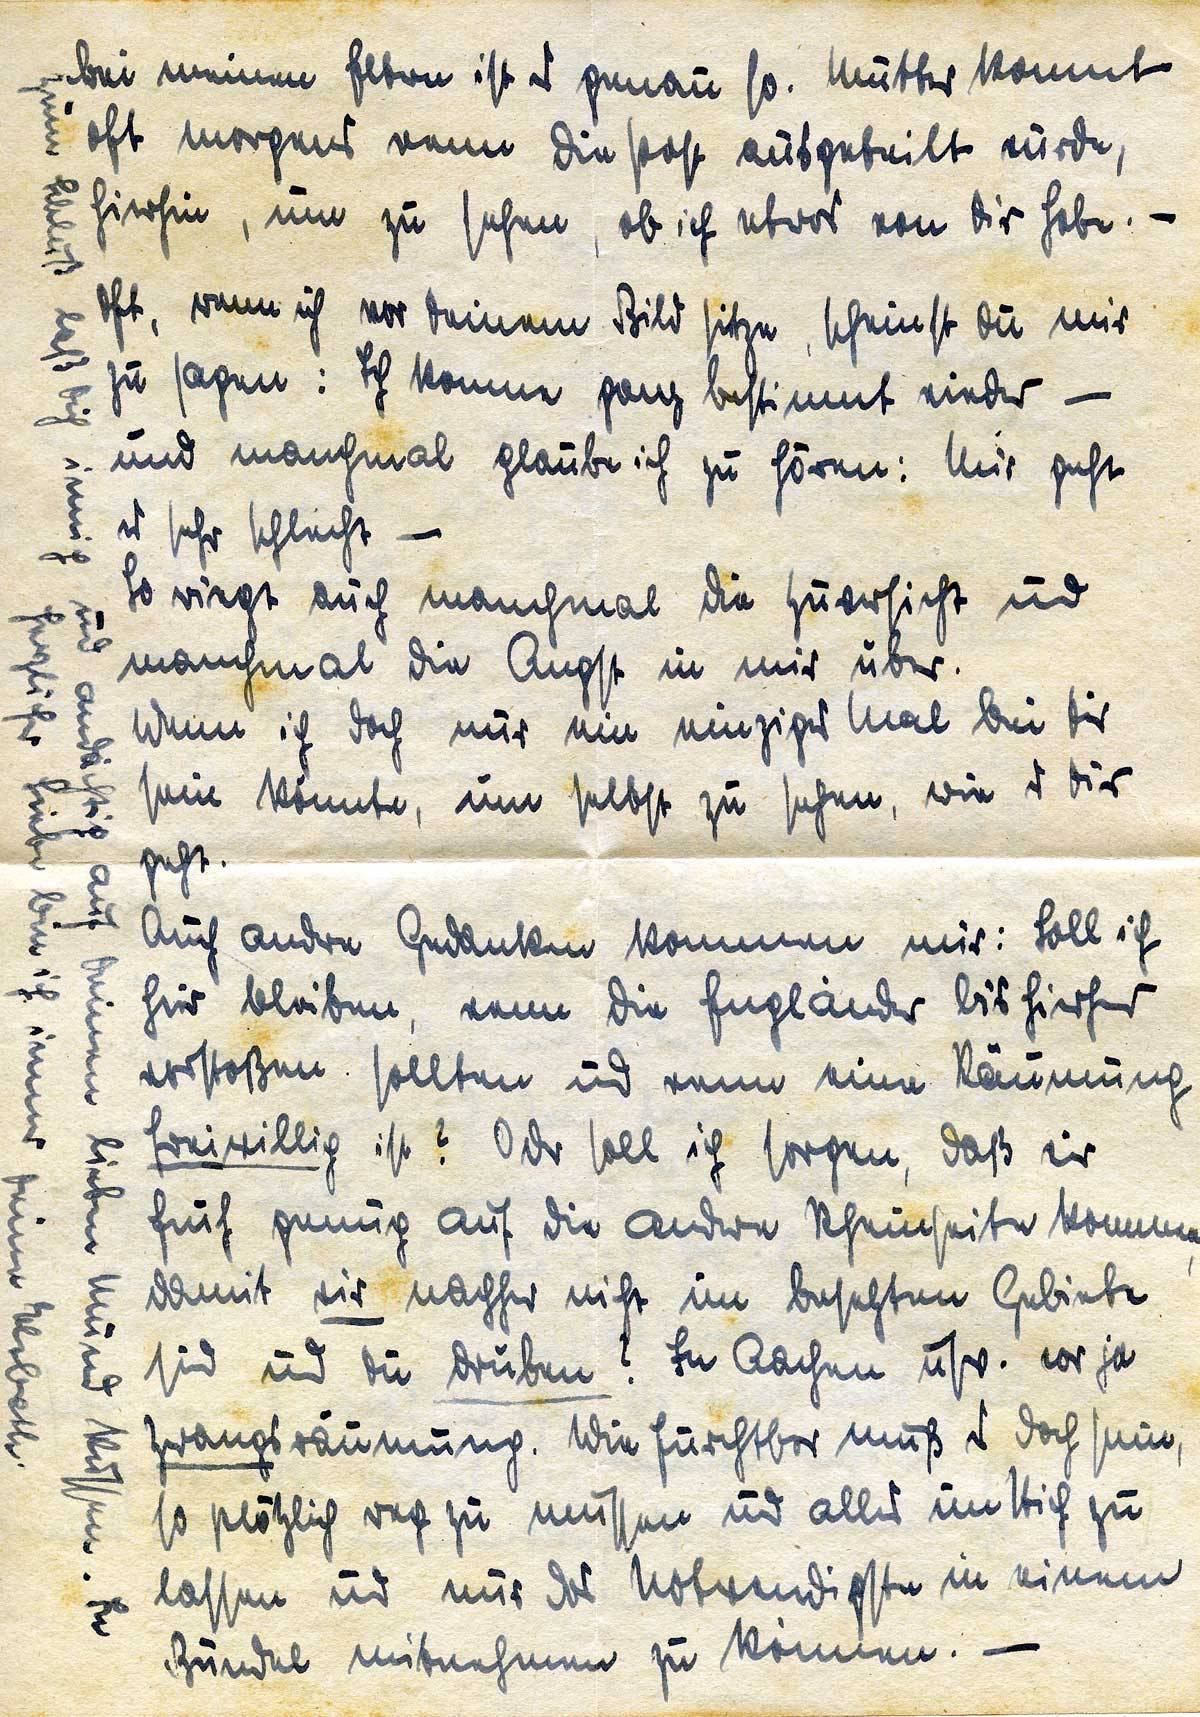 bei meinen Eltern ist es genau so. Mutter kommt
oft morgens wenn die Post ausgeteilt wurde,
hierhin, um zu sehen, ob ich etwas von dir habe. –
Oft, wenn ich vor deinem Bild sitze, scheinst du mir
zu sagen: Ich komme ganz bestimmt wieder –
und manchmal glaube ich zu hören: Mir geht
es sehr schlecht –
So wiegt auch manchmal die Zuversicht und
manchmal die Angst in mir über.
Wenn ich doch nur ein einziges Mal bei dir
sein könnte, um selbst zu sehen, wie es dir
geht.
Auch andre Gedanken kommen mir: Soll ich
hier bleiben, wenn die Engländer bis hierher
vorstoßen sollten und wenn eine Räumung
freiwillig ist? Oder soll ich sorgen, daß wir
früh genug auf die andere Rheinseite kommen,
damit wir nachher nicht im besetzten Gebiete
sind und du drüben? In Aachen usw. war ja
Zwangsräumung. Wie furchtbar muß es doch sein,
so plötzlich weg zu müssen und alles im Stich zu
lassen und nur das Notwendigste in einem
Bündel mitnehmen zu können. –
Zum Schluß laß dich innig und andächtig auf deinen lieben Mund küssen. In
herzlicher Liebe bin ich immer deine